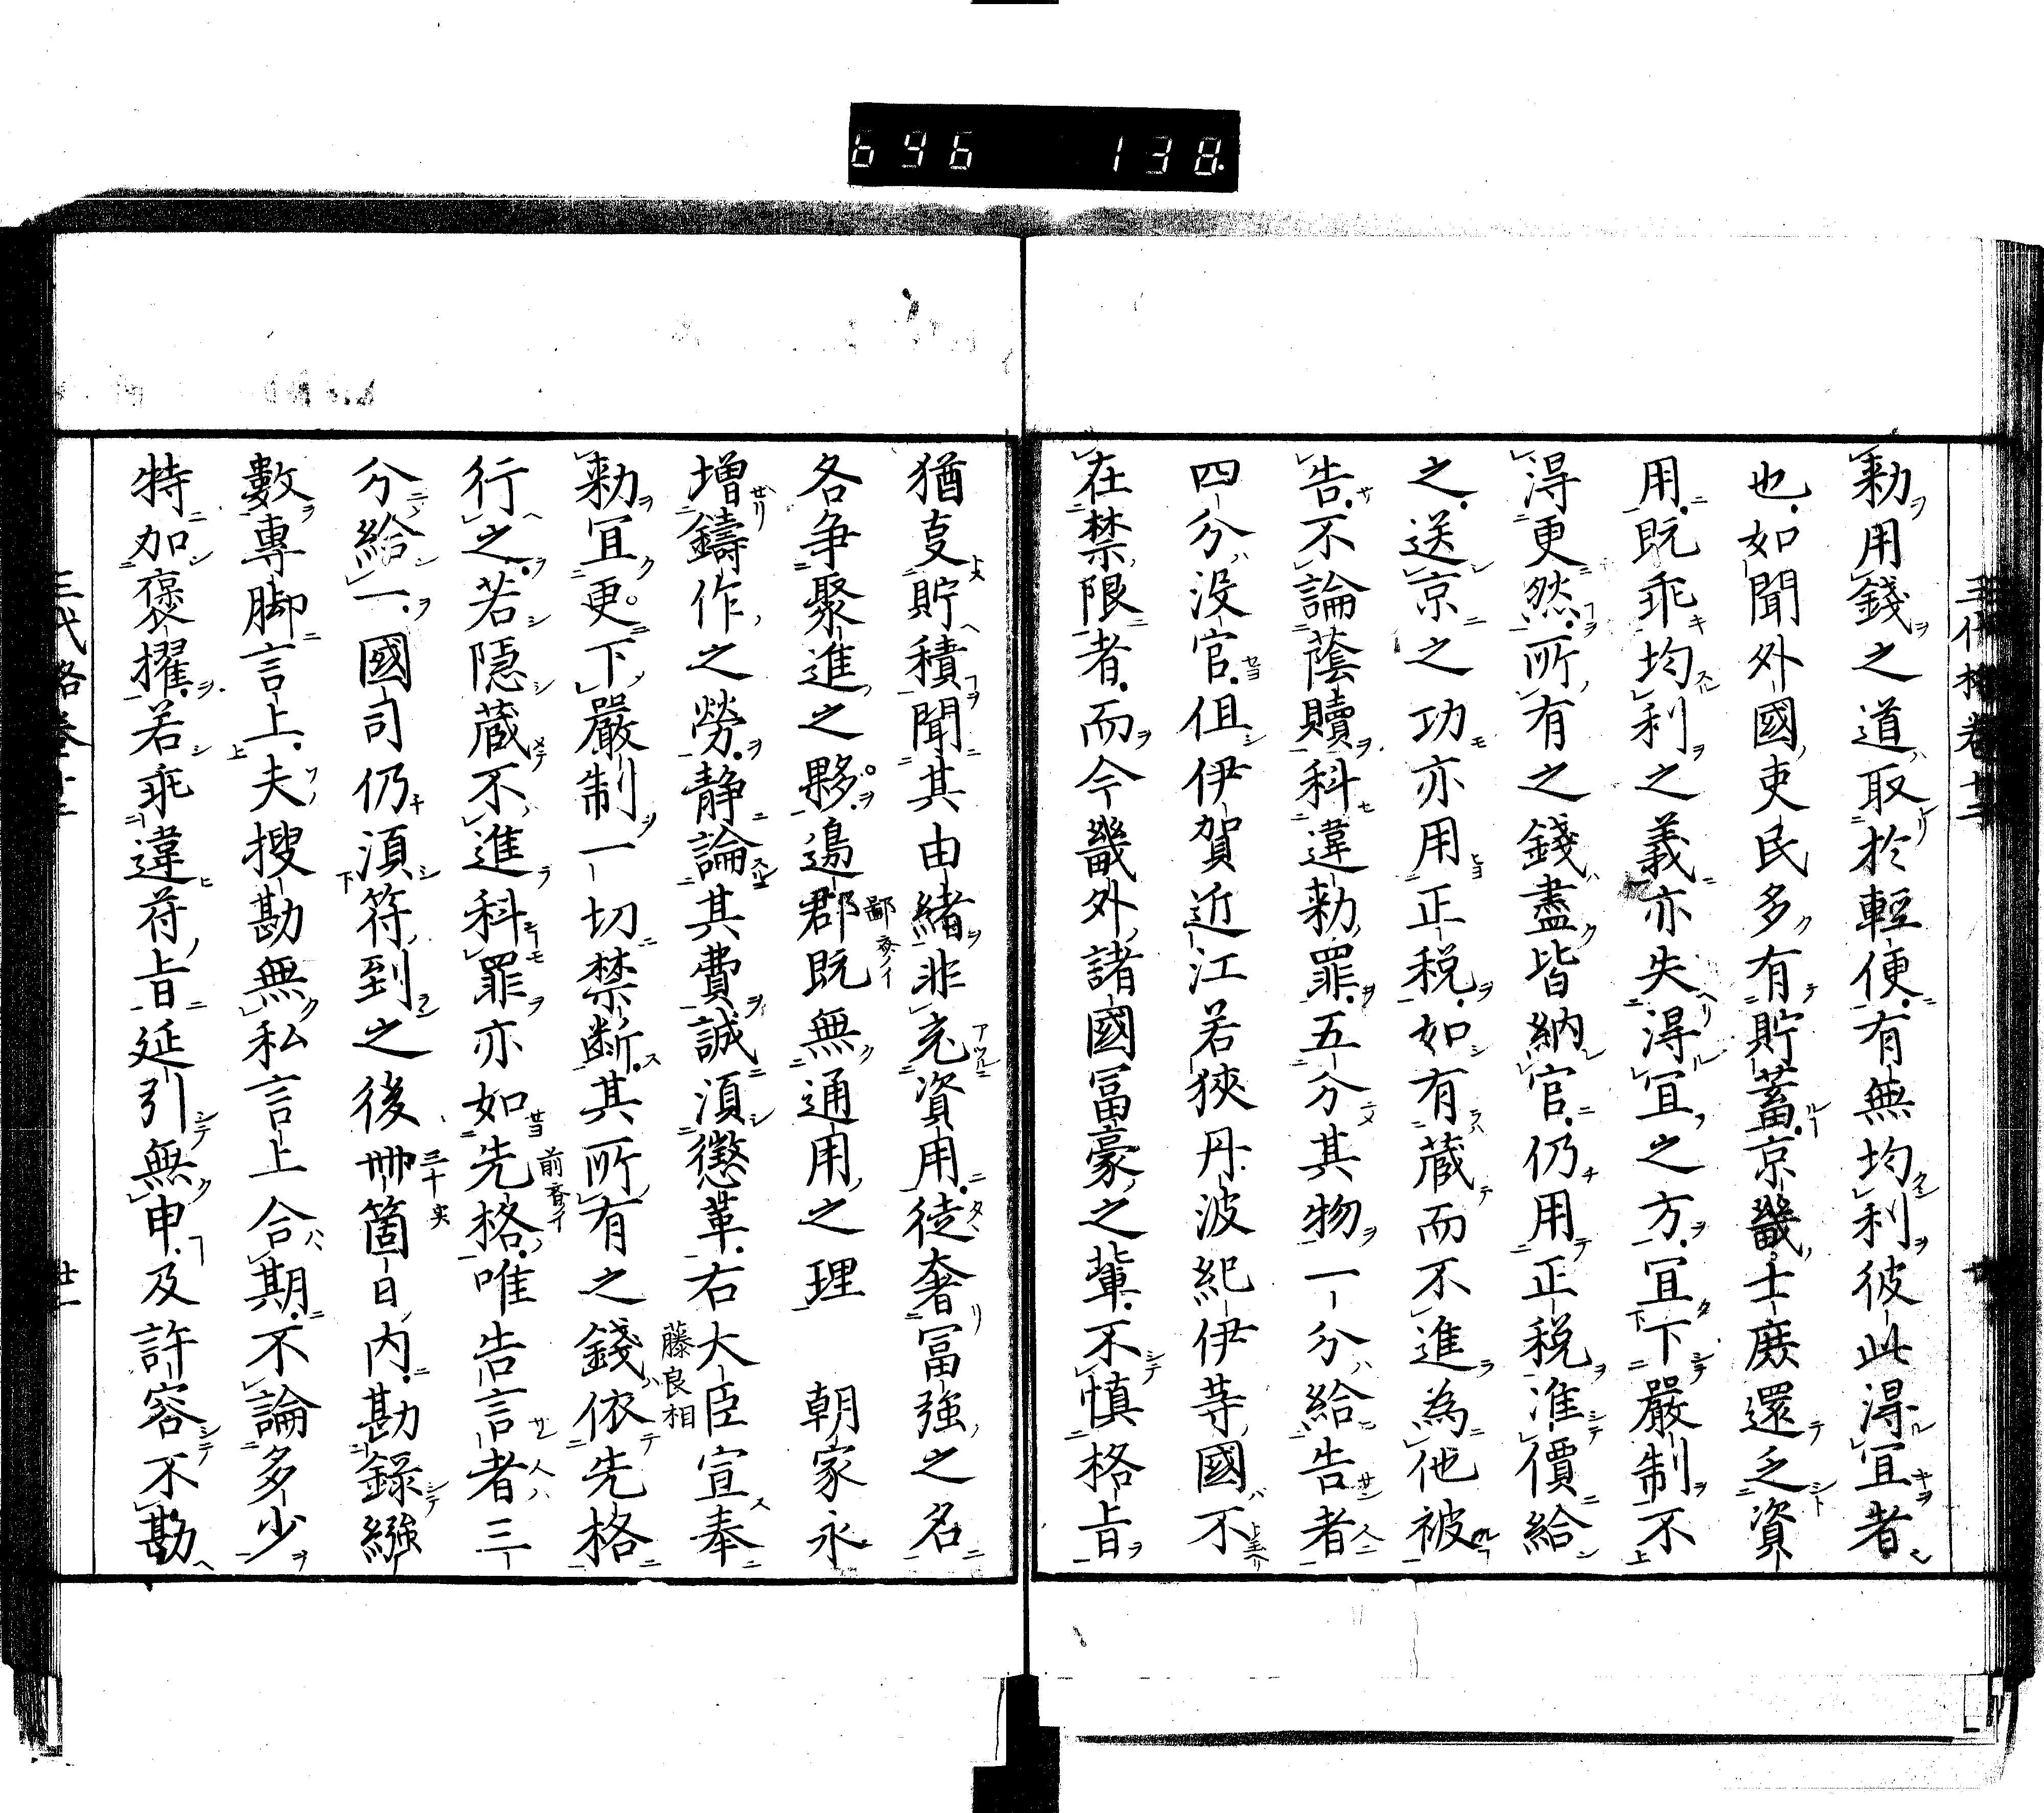 696 138
三代格卷十二
勑用錢之道取於輕便有無均利彼此得宜者
也如聞外國吏民多有貯蓄京畿士庶還乏資
用既乖均利之義亦失得宜之方宜下嚴制不
得更然所有之錢盡皆納官仍用正税准價給
之送京之功亦用正税如有蔵而不進為他被
告不論蔭贖科違勑罪五分其物一分給告者
四分没官但伊賀近江若狹丹波紀伊等國不
在禁限者而今畿外諸國冨豪之輩不慎格旨
猶支貯積聞其由緒非充資用徒奢冨強之名
各争聚進之夥邉郡既無通用之理　朝家永
増鑄作之勞静論其費誠湏懲革右大臣宣奉
藤良相
勑冝更下嚴制一切禁断其所有之錢依先格
行之若隠蔵不進科罪亦如先格唯告言者三
分給一國司仍湏符到之後卌箇日内勘録繦
三十
數專脚言上夫搜勘無私言上合期不論多少
特加褒擢若乖違符旨延引無申及許容不勘
三代格卷十二
廿一